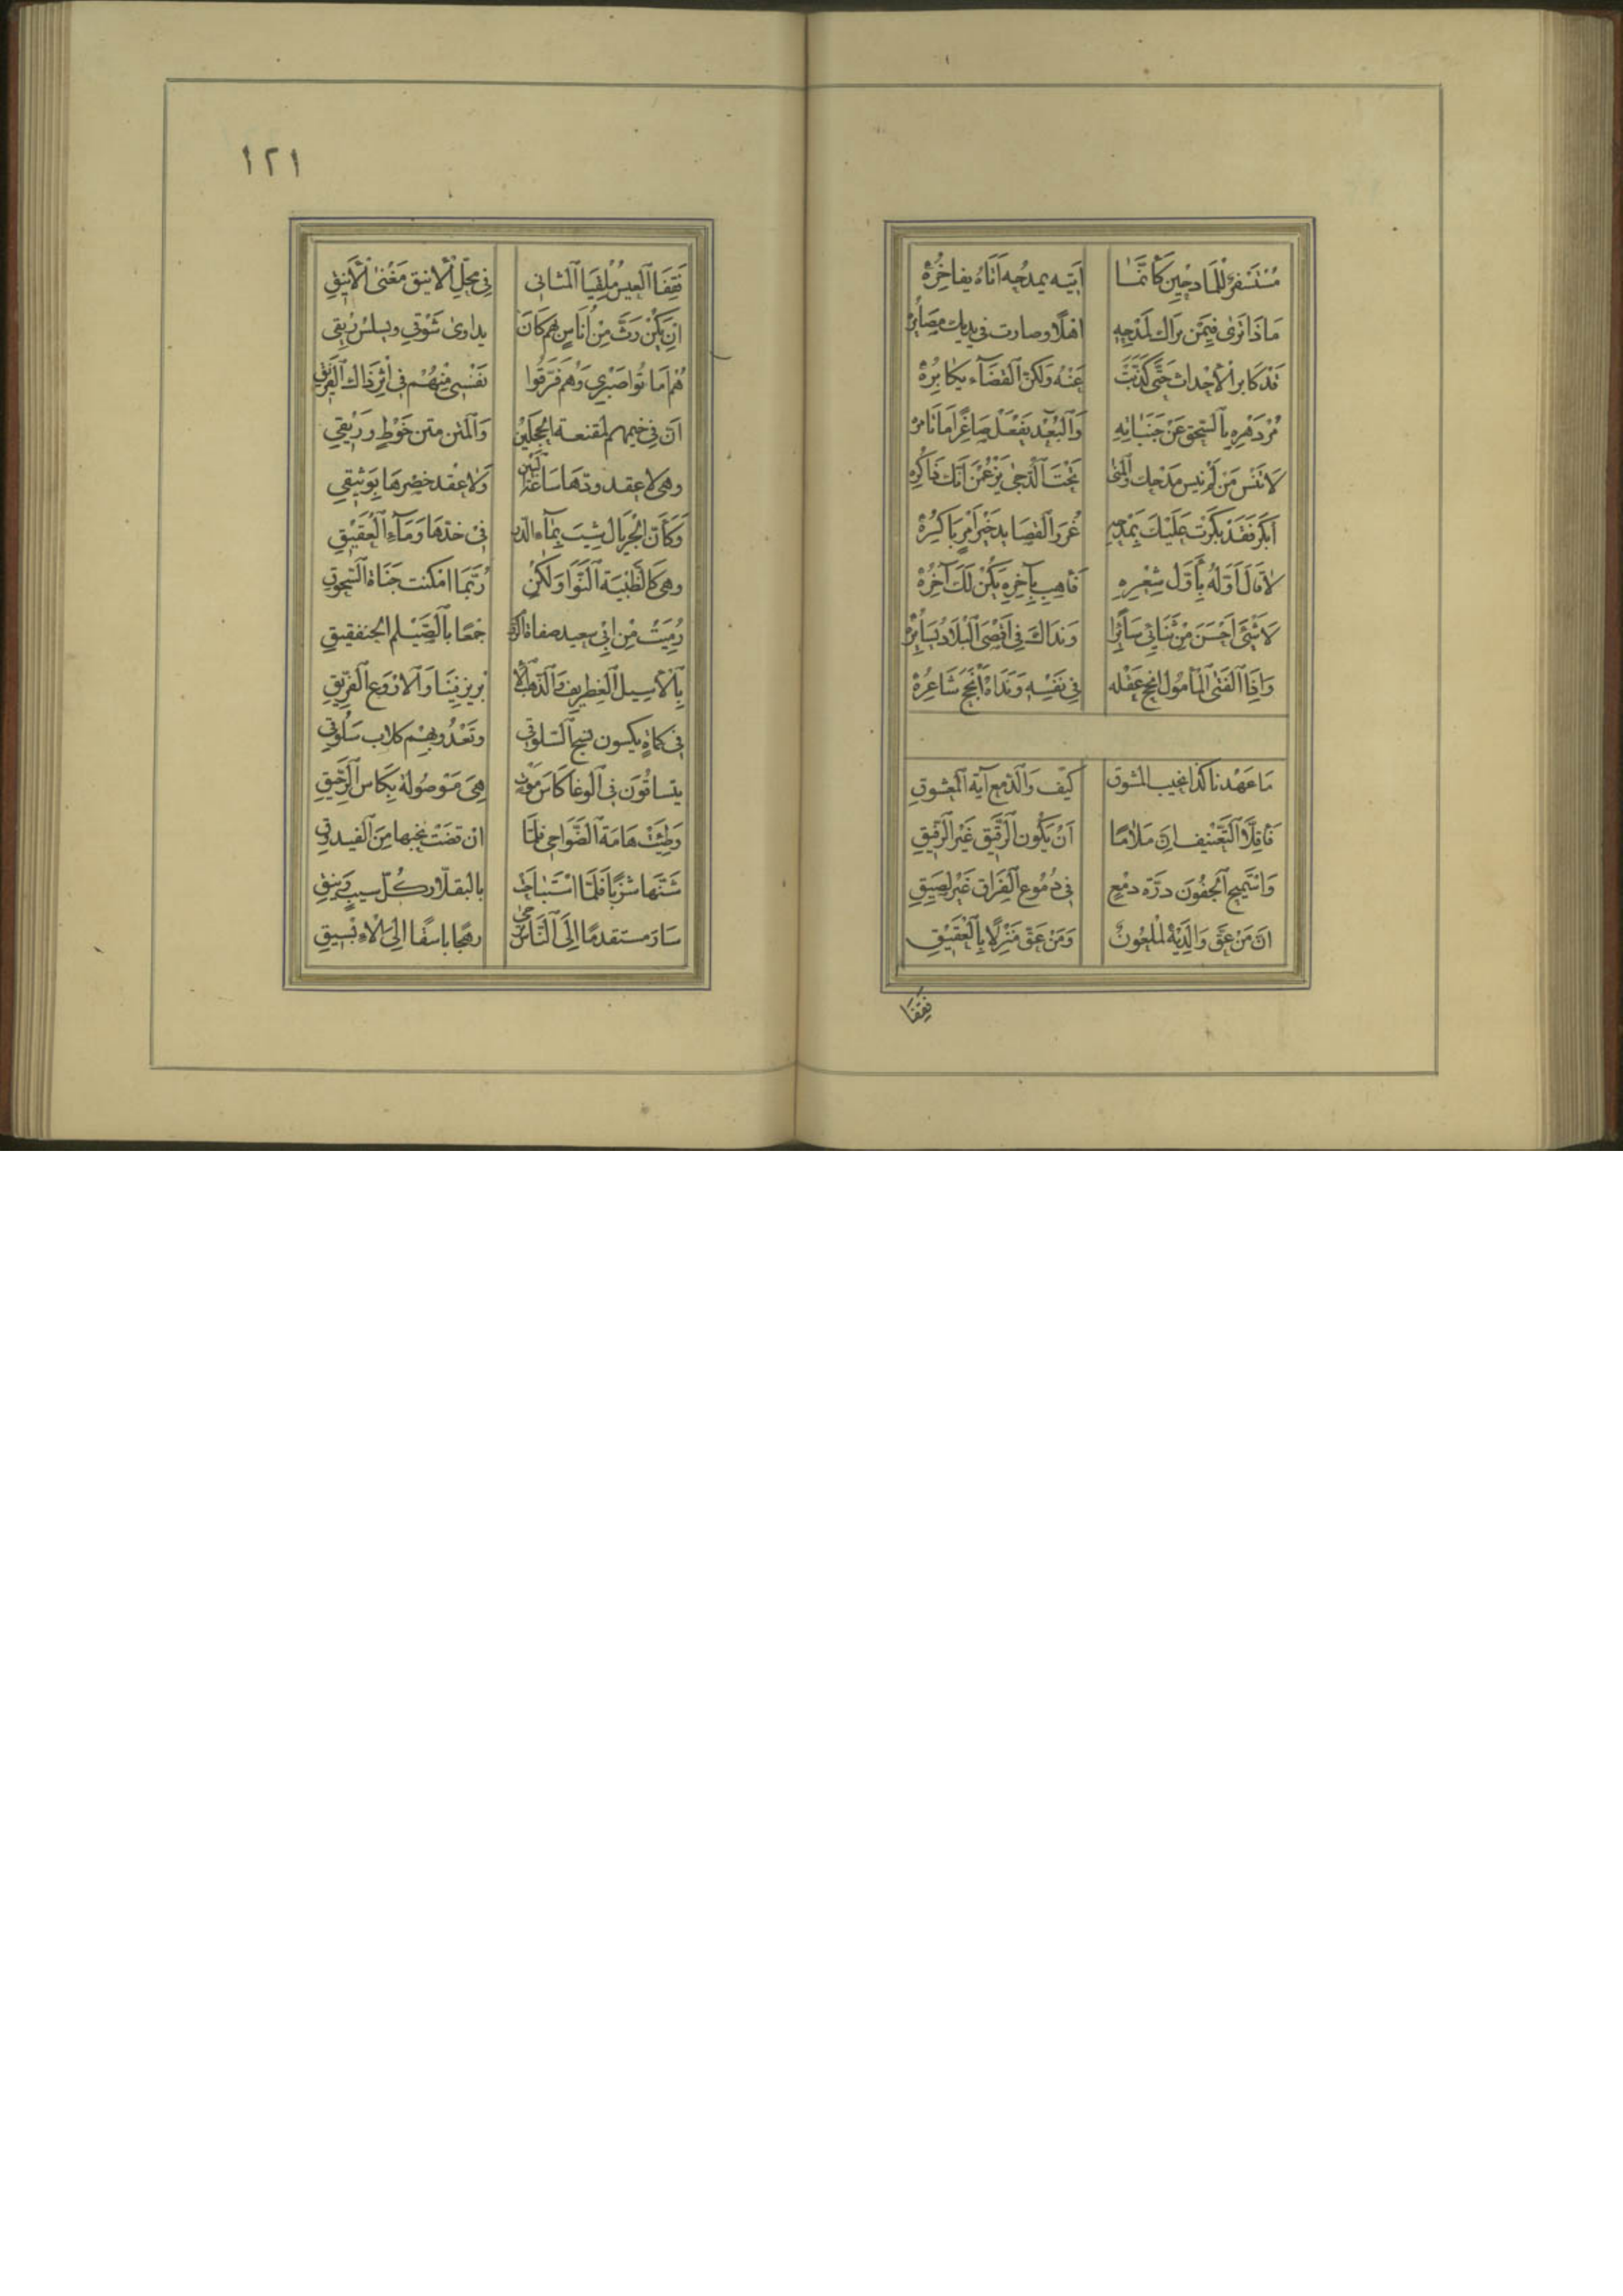 مُسْتَسْفِرٌ لِلْمَادِحِينَ كَأَنَّمَا اَتِيه يمدحُه اَتَاهُ يفاخِرُهْ
مَاذَا تَرٰى فِيمَن يرَاك لمَدْحِهِ اهْلًا وصارت فى يديك مصَائِرهْ
قَدْ كَابر الْأحْداث حَتّى كَذّبَتْ عَنْهُ وَلكن القضآء يكَابِرُهْ
مُرْ دَهْرهِ بِالْكَفِّ عَنْ جَنَبَاتِهِ وَالبُعْد يَفْعَلْ صَاغِرًا مَا تَامرهْ
لَا تَنسَ مَنْ لَمْ يَنْسَ مَدْحَك وَالْمُنٰى تَحْتَ الدُّجٰى يَزْعُمْنَ اَنّك ذَاكِرُه
اَبْكِرْ فَقَدْ بَكَرَتْ عَلَيْكَ بِمَدْحِهِ غُرَرُ القصَايد خَيْرُ اَمْرٍ بَاكِرُهْ
لَاقَاكَ اَوّلُهُ بِأَوّل شِعْرِهِ فَأَهِب بِآخِرِه يَكُنْ لَكَ آخِرُهْ
لَا شَىْءَ اَحْسَنُ مِنْ ثَنَائِى سَائِرًا وَنداكَ فى اَقْصَى الْبِلَاد يُسَائِرُهْ
وَاِذَا الْفَتَى الْمَأْمُول اَنْجَحَ عَقْلَه فِى نَفْسِهِ وَنَدَاهُ اَنْجَحَ شَاعِرُهْ
مَا عَهْدنا كَذا نحيبَ المشوق كيْف وَالدّمع آيَة المعْشوقِ
فَأَقِلَّا التَّعْنيف اِنّ مَلَامًا اَنْ يَكُون الرَّفيق غَيْرَ الرَّفيقِ
وَاسْتَمِيح الْجفُونَ درّه دمْعٍ فى دُمُوع الفِرَاق غَيْر لَصِيقِ
انّ مَنْ عَقَّ وَالِدَيْهِ لَمَلْعُونٌ وَمَنْ عَقّ مَنْزِلًا بِالْعَقيقِ
فقفا
١٢١
فَقِفَا العِيس مُلْقِيَا المثانى فى مَحَلّ الْأنيق مَغْنٰى الْأَنيقِ
اِن يَكُنْ رَثَّ مِنْ اُنَاسٍ بِهم كَانَ يداوىٰ شَوْقى ويسلسُ رِيقى
هُم اَمَاتُوا صَبْرِي وَهُم فَرّقُوا نَفْسى مِنْهُمْ فى اِثْر ذَاك الفريقِ
انّ فِى خيمهم لمقنعة الحجلين وَالمتن متن خَوْطٍ وَرِيقِ
وهى لا عقد ودّها سَاعَة البين وَلَا عقد خصْرهَا بِوَثيقِ
وَكَأنّ الجِرْيال شِيبَ بِمَآءِ الدّر فى خدّهَا وَمَآء العَقيقِ
وهى كَالظّبْيَة النّوَار وَلَكن رُبَّمَا امْكنت جَنَاة السّحُوقِ
رُمِيَتْ مِنْ اَبِى سعيد صفاة الرّوم جَمْعًا بِالصَّيْلم الخنفقيقِ
بِالْأسِيل الغِطريف وَالذّهب الْا بريز فينَا وَالاَرْوَع الغِرْنيقِ
فى كماةٍ يكسون نسج السَّلوقى وتَعْدُو بهم كلاب سَلُوقِ
يتساقَون فى الوغا كأسَ مَوت هِىَ مَوصُولَة بِكأس الرّحيقِ
وَطِئتْ هَامَة الضَّوَاحى فلمّا ان قضت نحبها مِنَ الفيدوقِ
شَنّهَا شزّبًا فَلَمّا اسْتَبَاحَت بالبقلّار كُلّ سيب وَنيقِ
سَارَ مستقدمًا اِلَى النَاس يزجى رهجًا باسقًا الِىَ الْاِبْسِيقِ